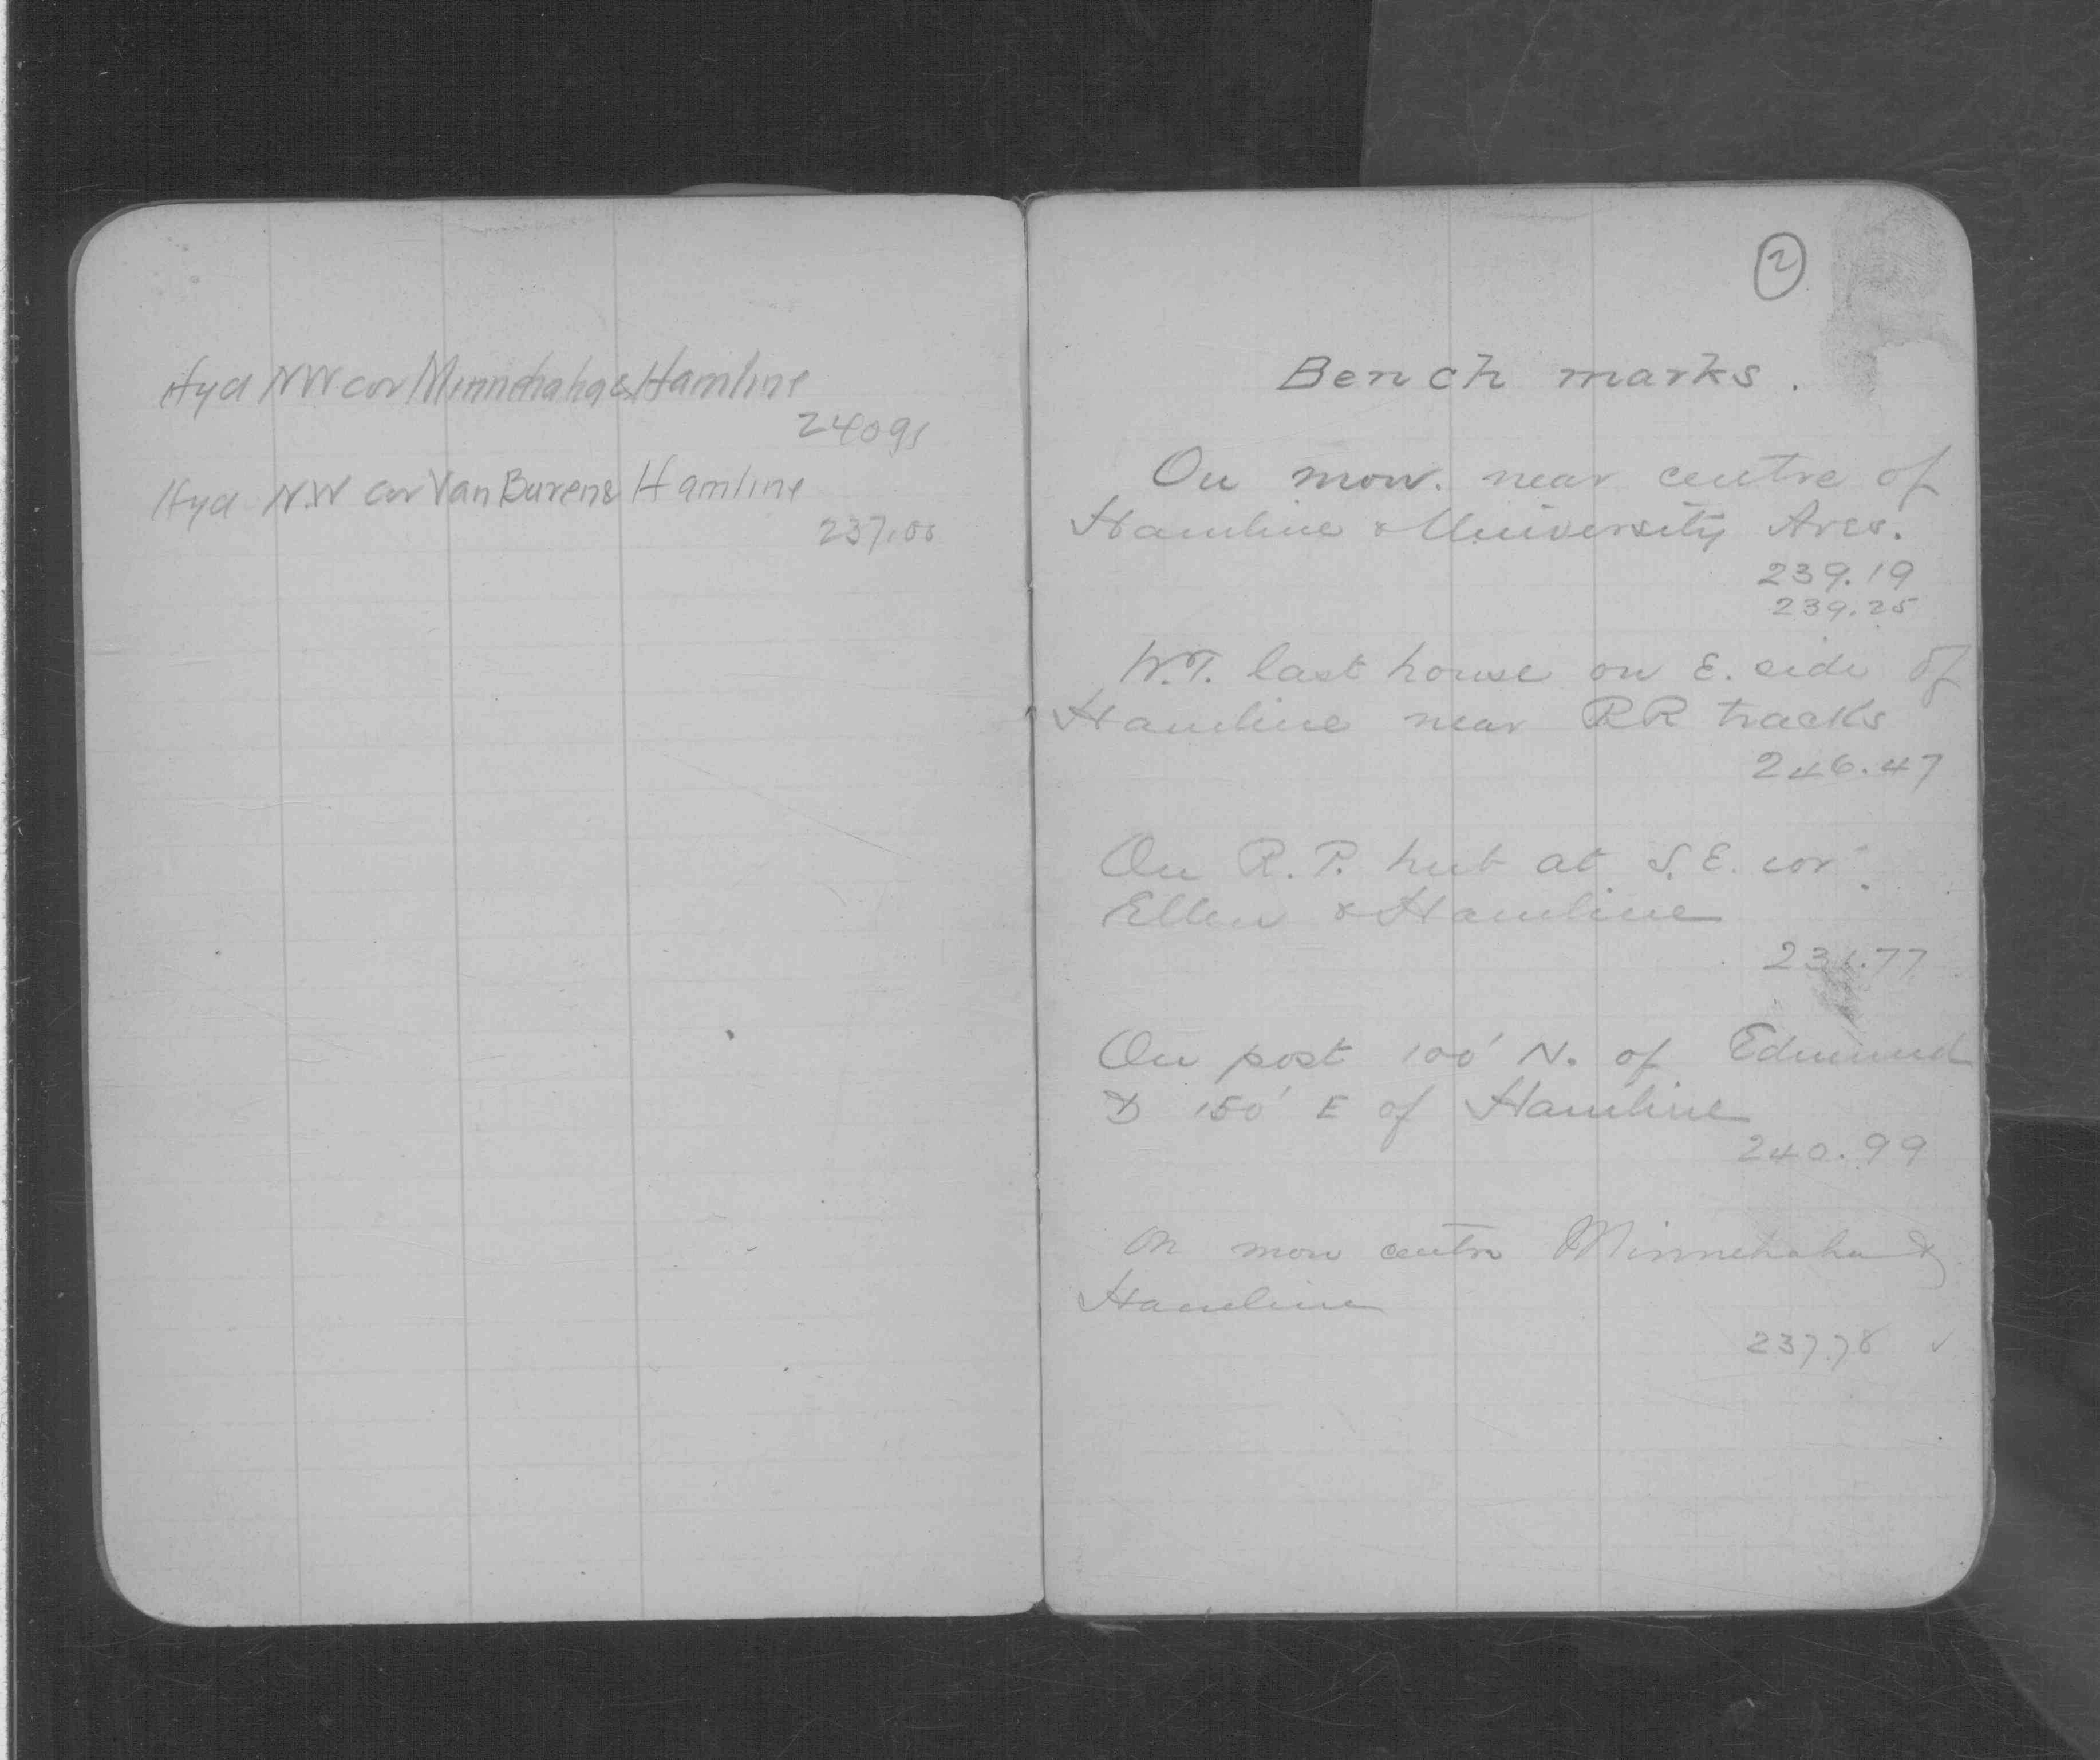 Hyd NW cor Minnehaha & Hamline
240 91
Hyd N.W cor Van Buren & Hamline
237.00
2
Bench marks.
On mon. near centre of
Hamline & University Aves.
239.19
239.25
W.T. last house on E. side of
Hamline near RR tracks
246.47
On R.P. hub at S.E. cor.
Ellen & Hamline
231.77
On post 100' N. of Edmund
& 150' E of Hamline
240.99
On mon centre Minnehaha &
Hamline
237.78 ✓